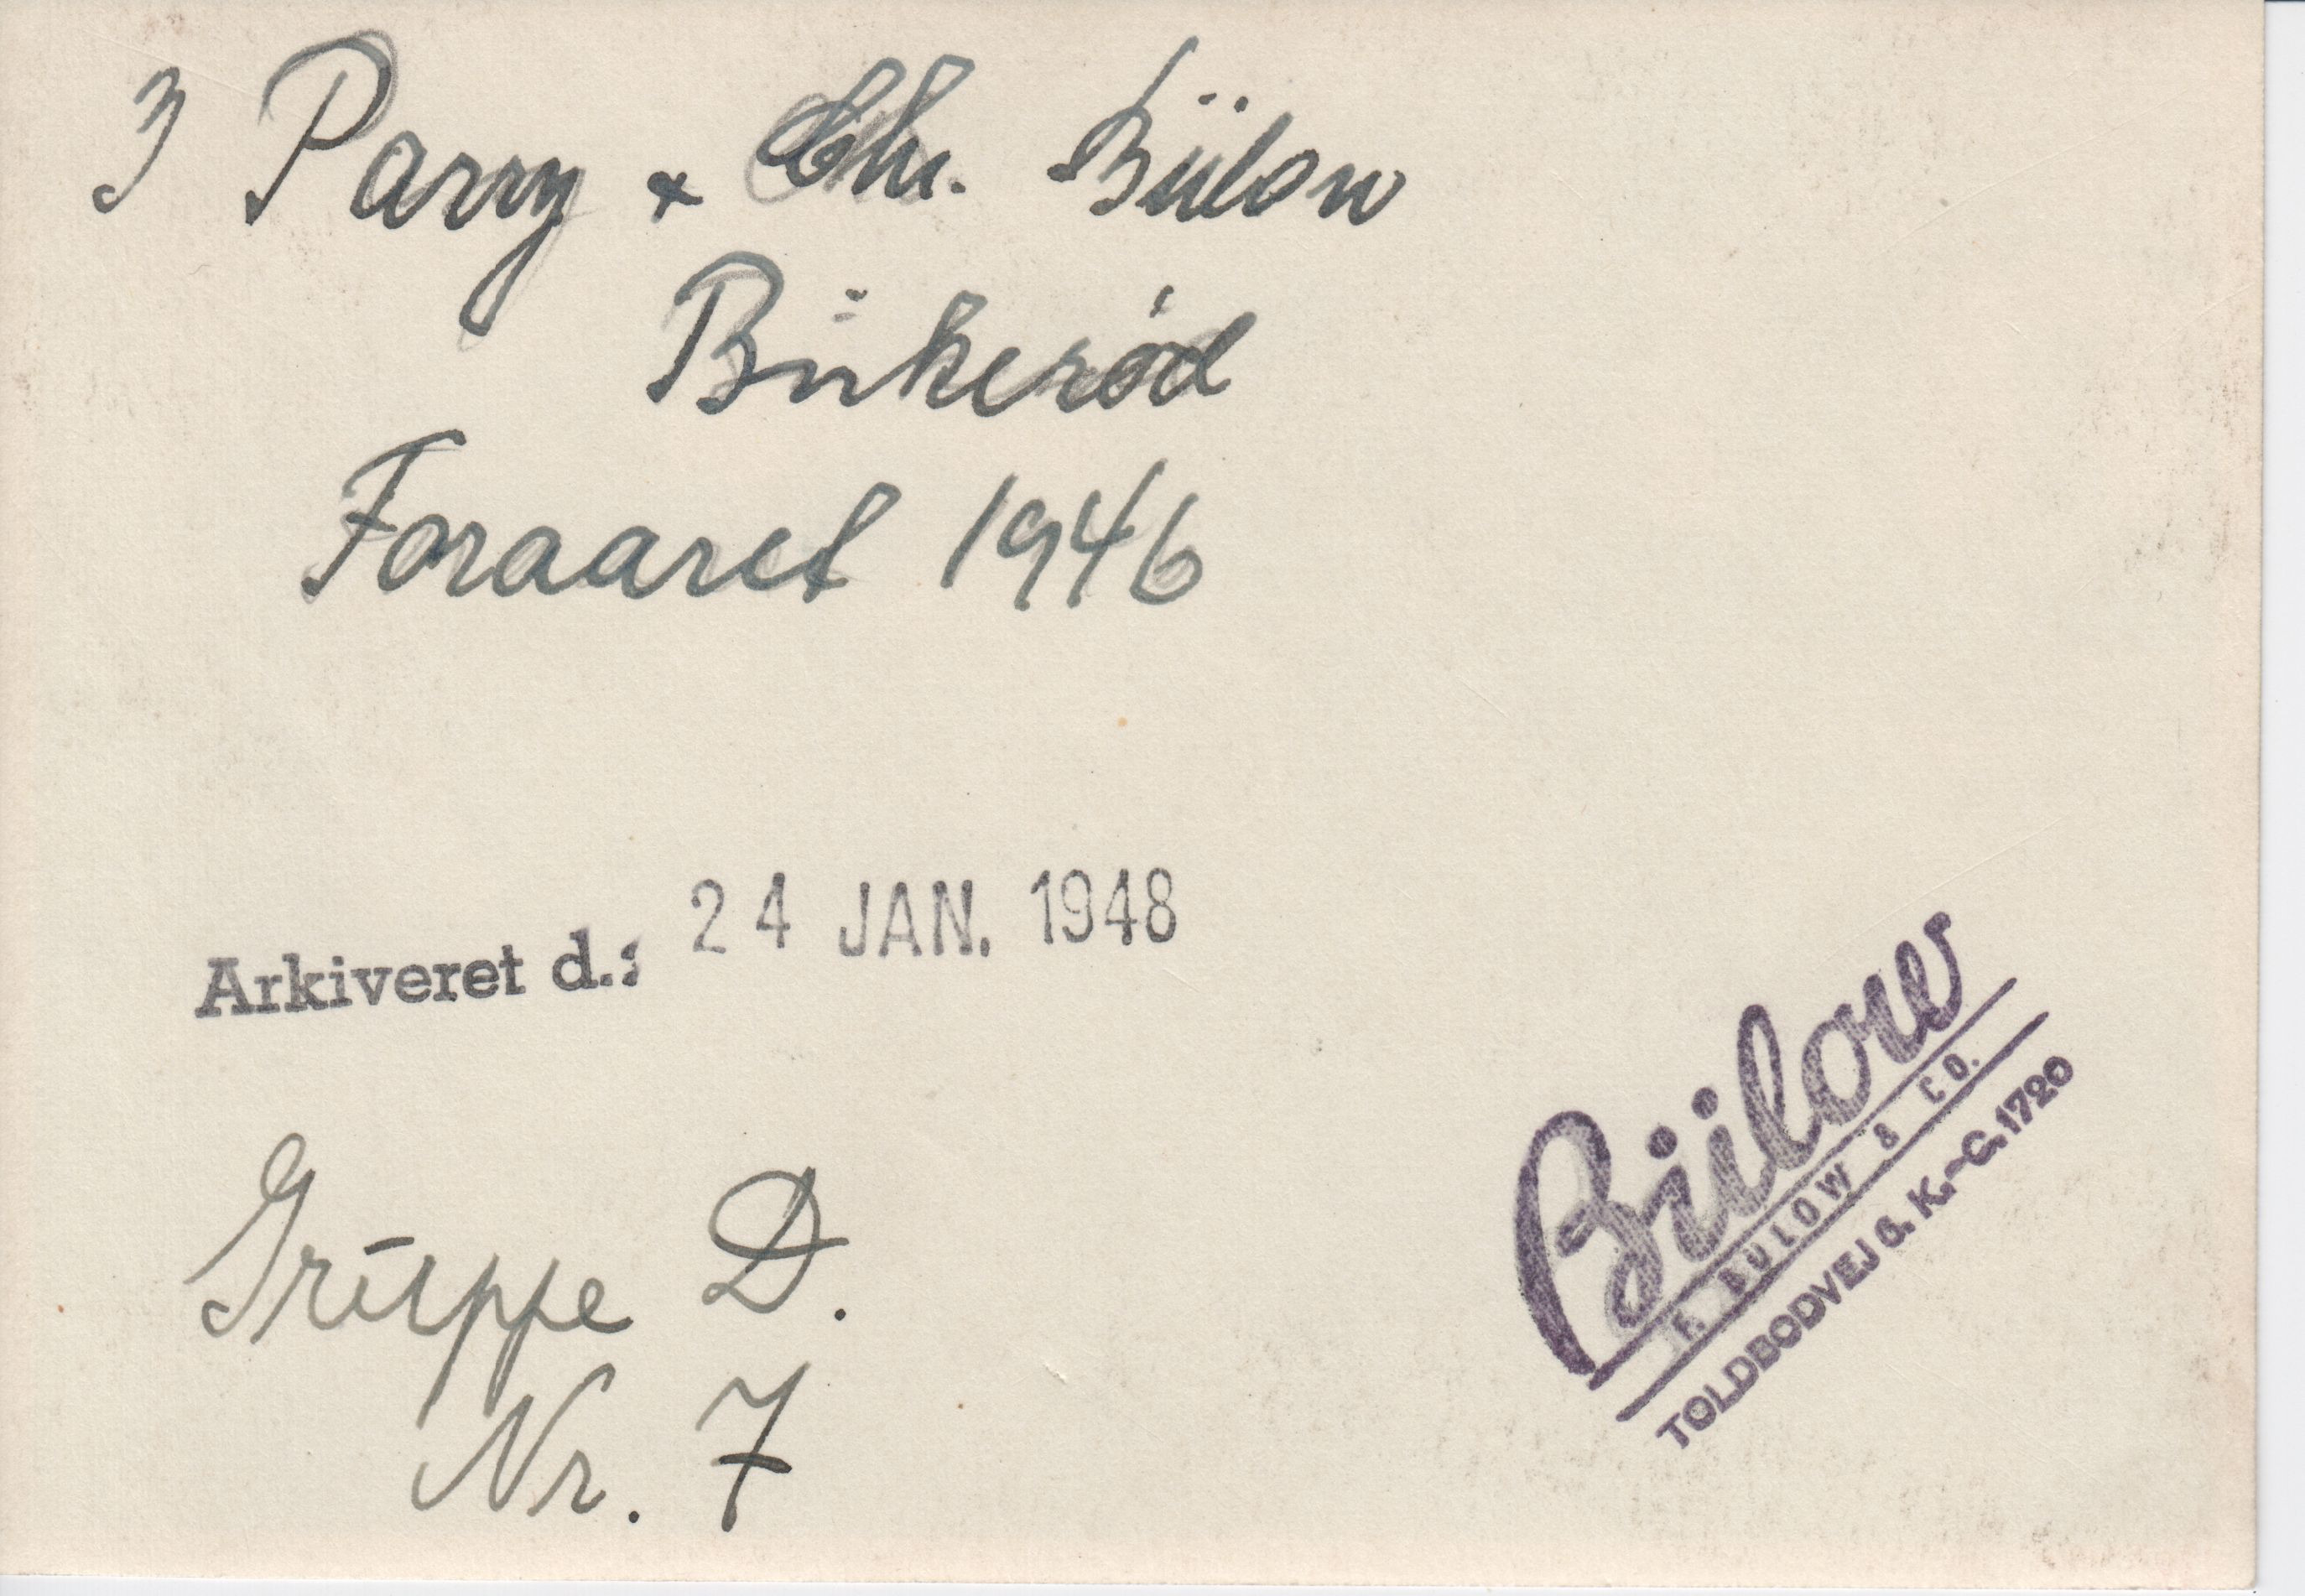 3 Parry + Chr. Bülow
Birkerød
Foraaret 1946
Arkiveret d.: 24 JAN. 1948
Gruppe D.
Nr. 7
Bülow
F. BÜLOW & CO.
TOLDBODVEJ 6. K.-C. 1720